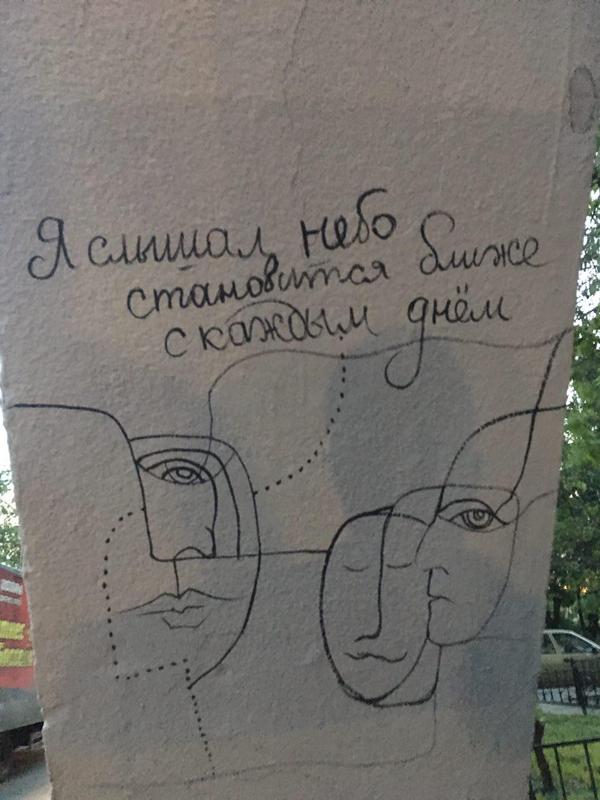 Я слышал, небо
становится ближе
с каждым днём